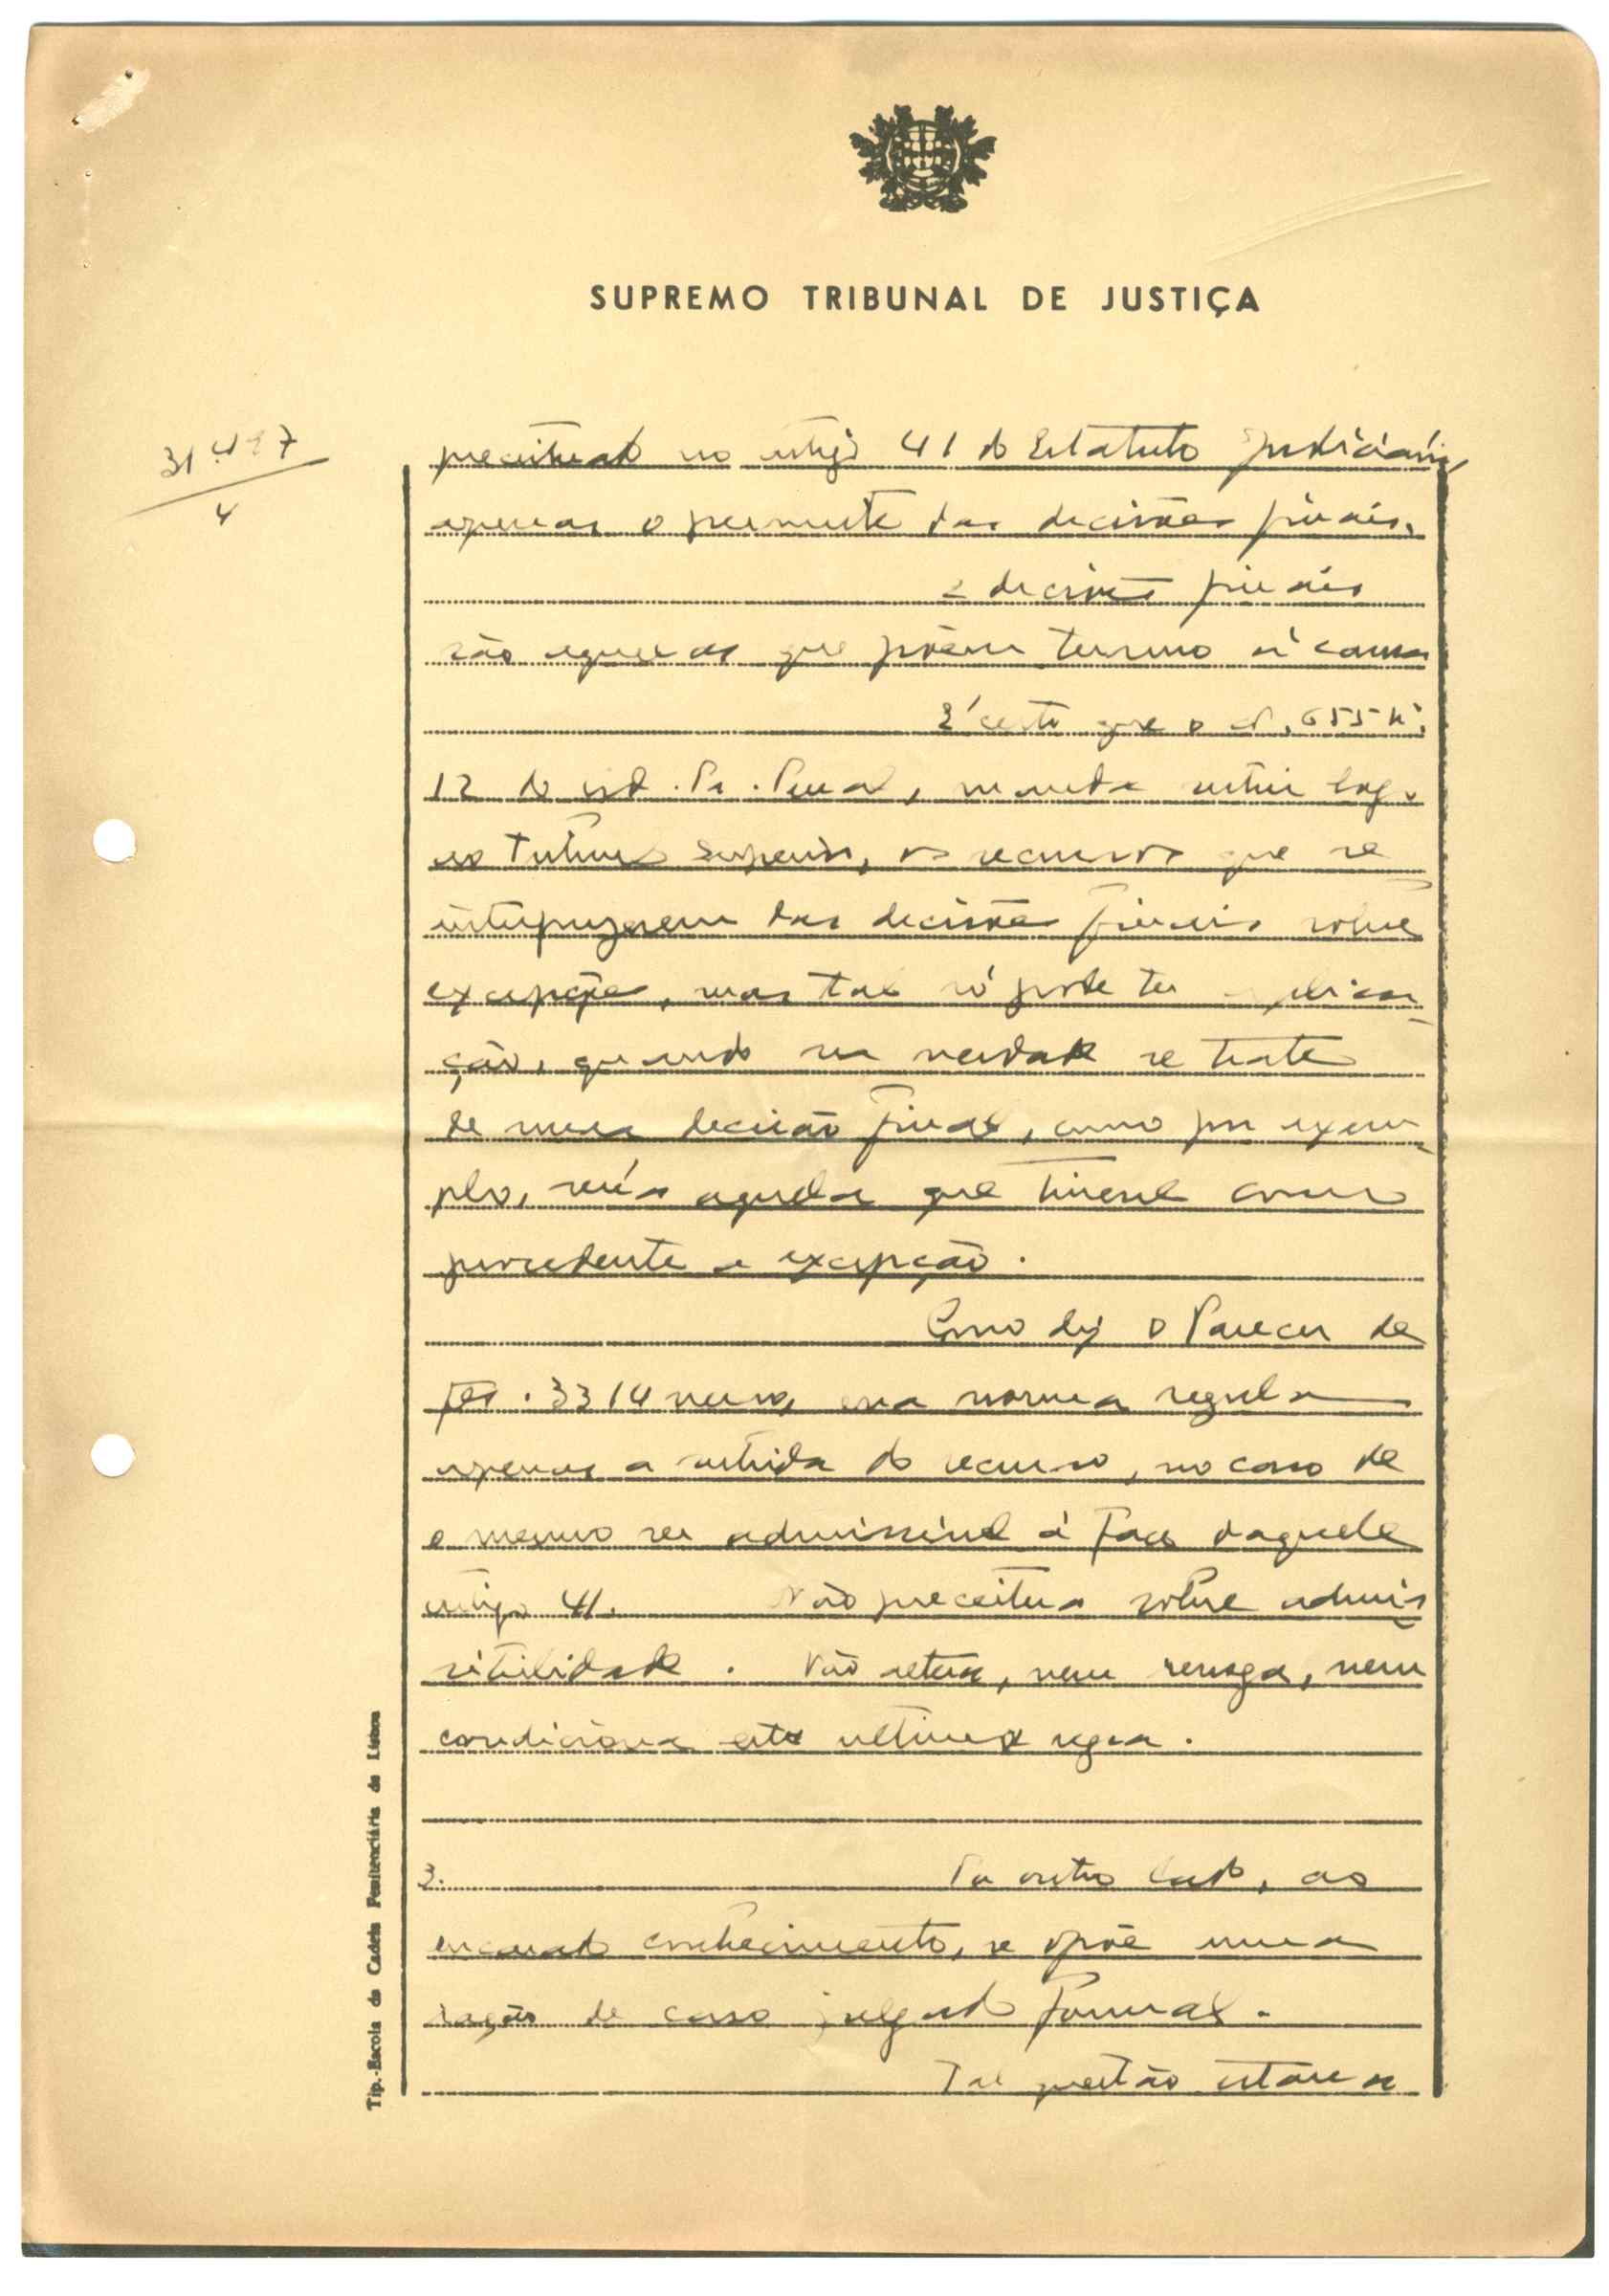 SUPREMO TRIBUNAL DE JUSTIÇA
31.417
4
preceituado no artigo 41 do Estatuto Judiciário,
apenas o permite das decisões finais.
E decisões finais
são aquelas que põem termo à causa
É certo que o art. 655 nº
12 do Cod. Pr. Penal, manda subir logo
ao Tribunal Superior, os recursos que se
interpuzerem das decisões finais sobre
excepções, mas tal só pode ter aplica-
ção, quando na verdade se trate
de uma decisão final, como por exem-
plo, seria aquela que tivesse como
procedente a excepção.
Como diz o Parecer de
fls. 3314 verso, essa norma regula
apenas a subida do recurso, no caso de
o mesmo ser admissivel à face daquele
artigo 41. Não preceitua sobre admis
sibilidade. Não altera, nem revoga, nem
condiciona esta ultima regra.
3. Por outro lado, ao
encarado conhecimento, se opõe uma
razão de caso julgado formal.
Tal questão estava
Tip.-Escola da Cadeia Penitenciária de Lisboa